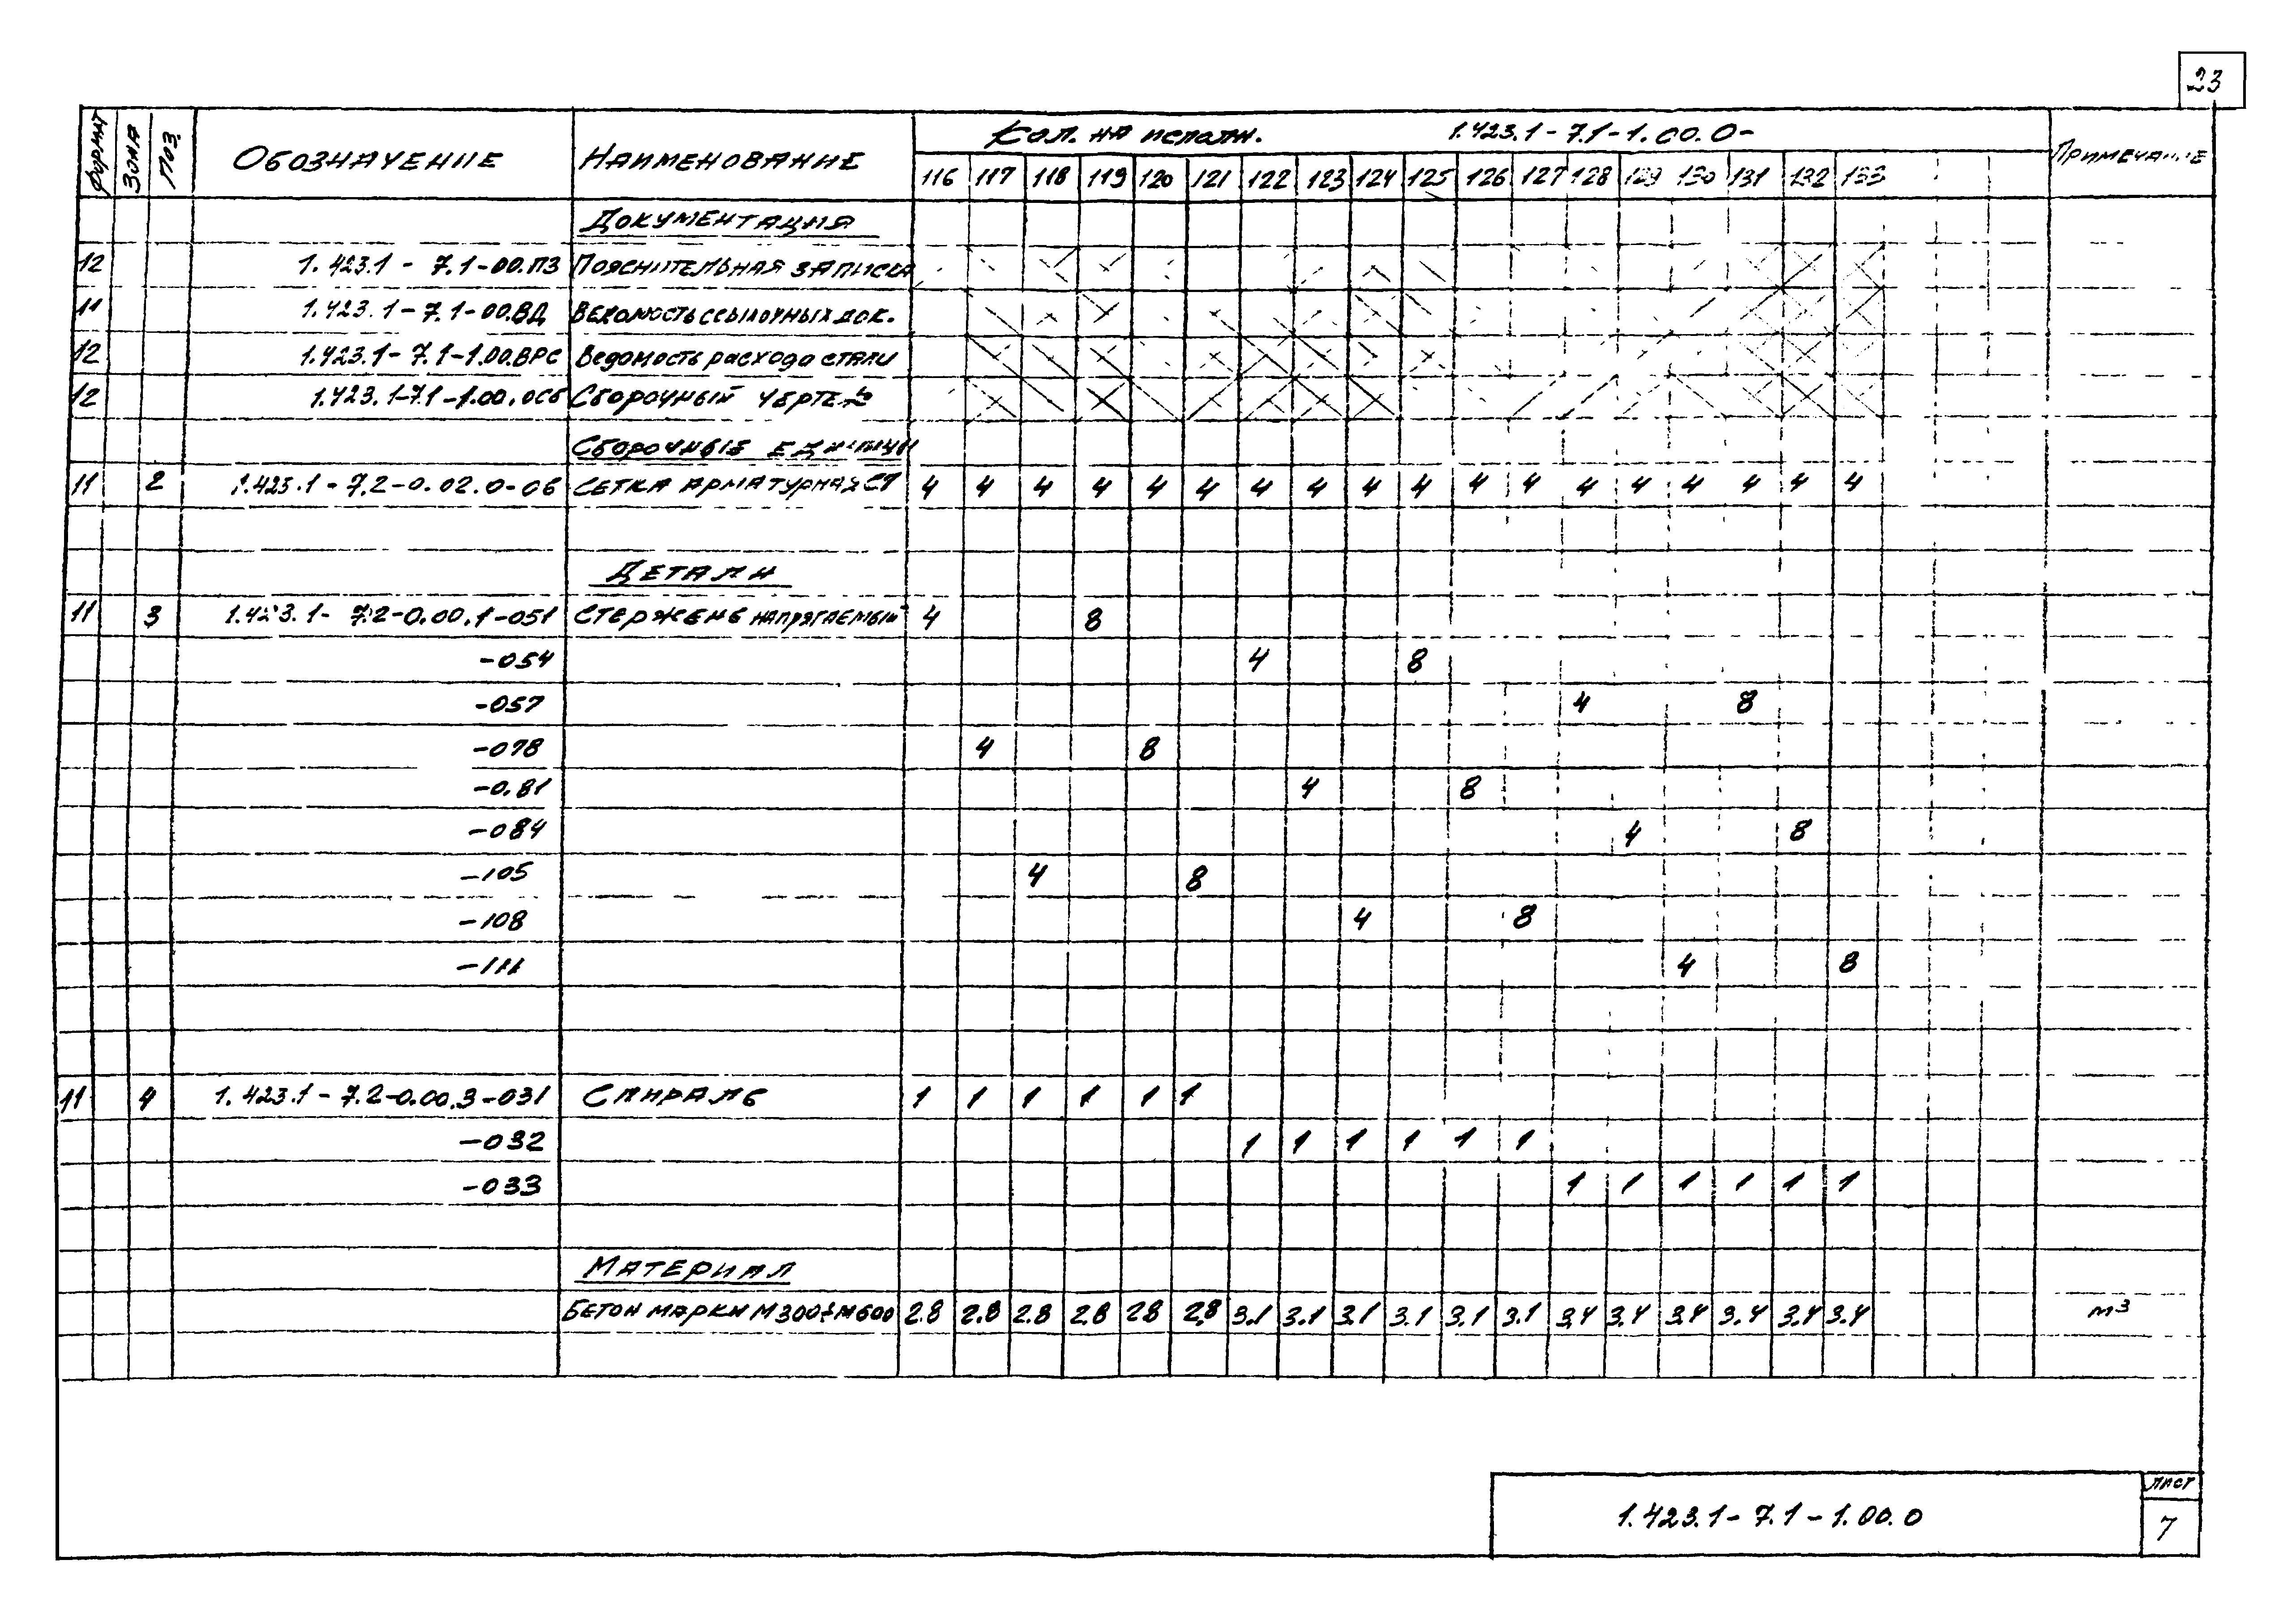 23
Формат Зона Поз. Обозначение Наименование Кол. на исполн. 1.423.1-7.1-1.00.0- Примечание
116 117 118 119 120 121 122 123 124 125 126 127 128 129 130 131 132 133
Документация
12 1.423.1-7.1-00.ПЗ Пояснительная записка
11 1.423.1-7.1-00.ВД Ведомость ссылочных док.
12 1.423.1-7.1-1.00.ВРС Ведомость расхода стали
12 1.423.1-7.1-1.00.0СБ Сборочный чертеж
Сборочные единицы
11 2 1.423.1-7.2-0.02.0-06 Сетка арматурная С7 4 4 4 4 4 4 4 4 4 4 4 4 4 4 4 4 4 4
Детали
11 3 1.423.1-7.2-0.00.1-051 Стержень напрягаемый 4 8
-054 4 8
-057 4 8
-078 4 8
-0.81 4 8
-084 4 8
-105 4 8
-108 4 8
-111 4 8
11 4 1.423.1-7.2-0.00.3-031 Спираль 1 1 1 1 1 1
-032 1 1 1 1 1 1
-033 1 1 1 1 1 1
Материал
Бетон марки М300÷М600 2.8 2.8 2.8 2.8 2.8 2.8 3.1 3.1 3.1 3.1 3.1 3.1 3.4 3.4 3.4 3.4 3.4 3.4 м³
1.423.1-7.1-1.00.0
Лист
7